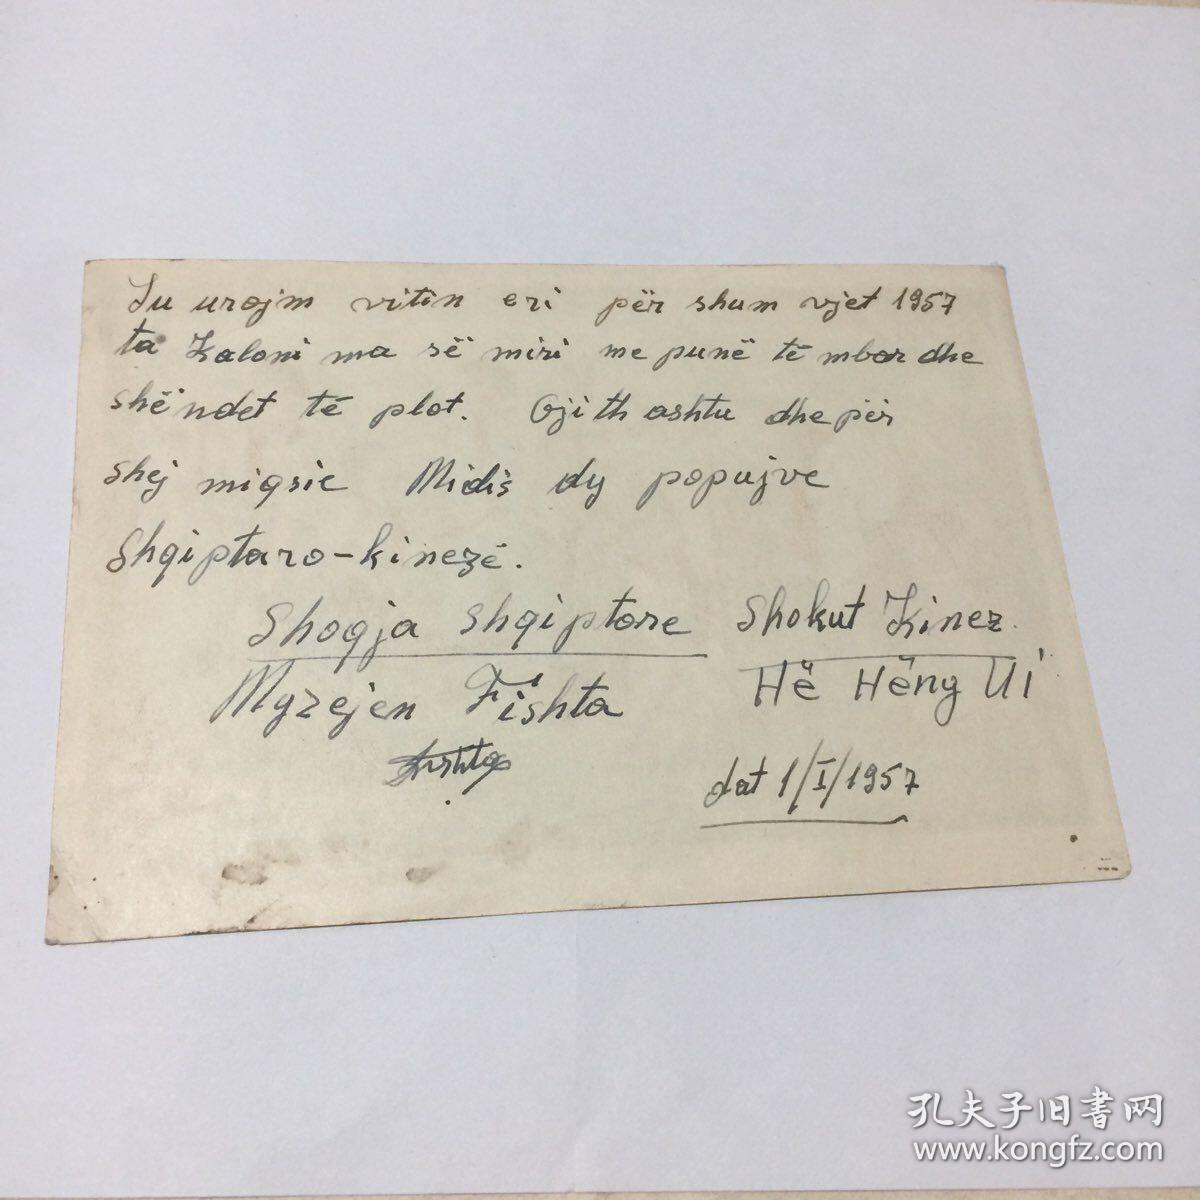 Ju urojm vitin eri për shum vjet 1957
ta kaloni ma së miri me punë të mbar dhe
shëndet të plot. Gjith ashtu dhe për
shej miqsie Midis dy popujve
Shqiptaro-kinezë.
Shoqja shqiptare Shokut Kinez.
Myzejen Fishta Hë Hëng Ui
dat 1/I/1957
孔夫子旧书网
www.kongfz.com